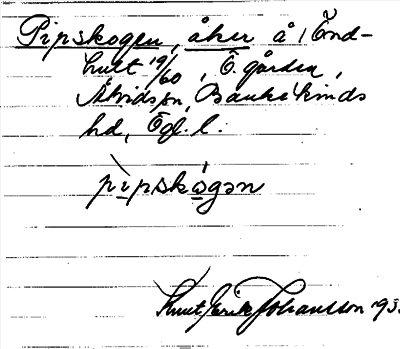 Pipskogen, åker å 1 End-
hult 19/60, E. gården,
Åtvids sn, Bankekinds
hd, Ögl. l.
pipskogən
Knut Erik Johansson 193